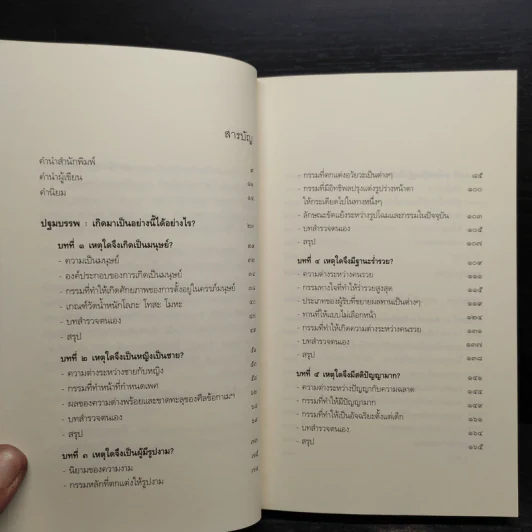 สารบัญ
คำนำสำนักพิมพ์
คำนำผู้เขียน
คำนิยม
ปฐมบรรพ : เกิดมาเป็นอย่างนี้ได้อย่างไร? ๒๐
บทที่ ๑ เหตุใดจึงเกิดเป็นมนุษย์?
- ความเป็นมนุษย์
- องค์ประกอบของการเกิดเป็นมนุษย์
- กรรมที่ทำให้เกิดศักยภาพของการตั้งอยู่ในครรภ์มนุษย์
- เกณฑ์วัดน้ำหนักโลภะ โทสะ โมหะ
- บทสำรวจตนเอง
- สรุป
บทที่ ๒ เหตุใดจึงเป็นหญิงเป็นชาย?
- ความต่างระหว่างชายกับหญิง
- กรรมที่ทำหน้าที่กำหนดเพศ
- ผลของความด่างพร้อยและขาดทะลุของศีลข้อกาเมฯ
- บทสำรวจตนเอง
- สรุป
บทที่ ๓ เหตุใดจึงเป็นผู้มีรูปงาม?
- นิยามของความงาม
- กรรมหลักที่ตกแต่งให้รูปงาม
- กรรมที่ตกแต่งอวัยวะเป็นต่างๆ ๘๕
- กรรมที่มีอิทธิพลปรุงแต่งรูปร่างหน้าตา ๑๐๐
ให้กระเดียดไปในทางหนึ่งๆ
- ลักษณะขัดแย้งระหว่างรูปโฉมและกรรมในปัจจุบัน ๑๐๓
- บทสำรวจตนเอง ๑๐๕
- สรุป ๑๐๗
บทที่ ๔ เหตุใดจึงมีฐานะร่ำรวย? ๑๐๙
- ความต่างระหว่างคนรวย ๑๑๑
- กรรมทางใจที่ทำให้ร่ำรวยสูงสุด
- ประเภทของผู้รับที่ขยายผลทานเป็นต่างๆ
- ทานที่ให้แบบไม่เลือกหน้า
- กรรมที่ทำให้เกิดความต่างระหว่างคนรวย ๑๓๑
- บทสำรวจตนเอง ๑๓๗
- สรุป ๑๓๘
บทที่ ๕ เหตุใดจึงมีสติปัญญามาก?
- ความต่างระหว่างปัญญากับความฉลาด
- กรรมที่ทำให้มีปัญญามาก
- กรรมที่ทำให้เป็นอัจฉริยะตั้งแต่เด็ก
- บทสำรวจตนเอง ๑๖๔
- สรุป ๑๖๕